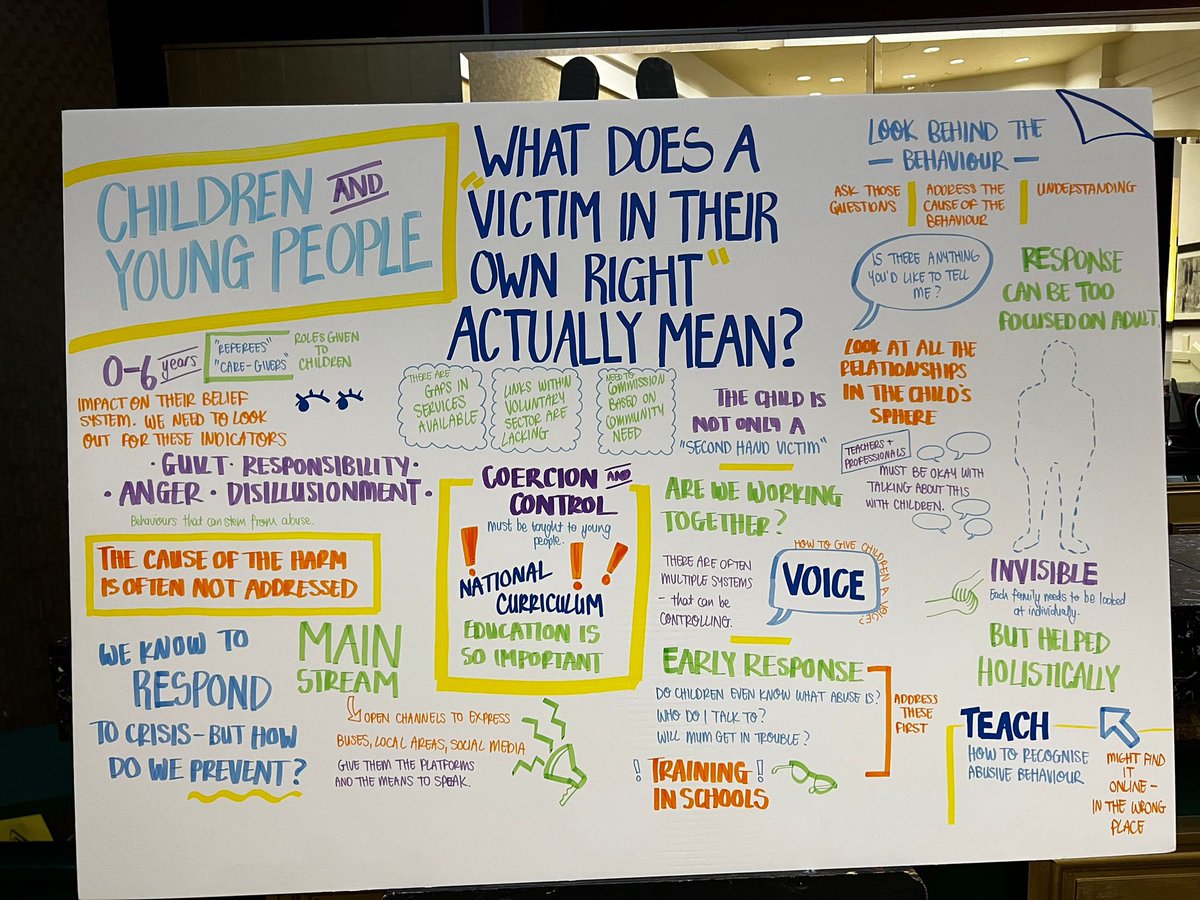 CHILDREN AND
YOUNG PEOPLE
WHAT DOES A
"VICTIM IN THEIR
OWN RIGHT"
ACTUALLY MEAN?
LOOK BEHIND THE
— BEHAVIOUR —
ASK THOSE
QUESTIONS
ADDRESS THE
CAUSE OF THE
BEHAVIOUR
UNDERSTANDING
IS THERE ANYTHING
YOU'D LIKE TO TELL
ME?
RESPONSE
CAN BE TOO
FOCUSED ON ADULT.
0-6 years
"REFEREES"
"CARE-GIVERS"
ROLES GIVEN
TO
CHILDREN
IMPACT ON THEIR BELIEF
SYSTEM. WE NEED TO LOOK
OUT FOR THESE INDICATORS
· GUILT · RESPONSIBILITY ·
· ANGER · DISILLUSIONMENT ·
Behaviours that can stem from abuse.
THE CAUSE OF THE HARM
IS OFTEN NOT ADDRESSED
THERE ARE
GAPS IN
SERVICES
AVAILABLE
LINKS WITHIN
VOLUNTARY
SECTOR ARE
LACKING
NEED TO
COMMISSION
BASED ON
COMMUNITY
NEED
THE CHILD IS
NOT ONLY A
"SECOND HAND VICTIM"
LOOK AT ALL THE
RELATIONSHIPS
IN THE CHILD'S
SPHERE
TEACHERS +
PROFESSIONALS
MUST BE OKAY WITH
TALKING ABOUT THIS
WITH CHILDREN.
COERCION AND
CONTROL
must be taught to young
people.
! ! !
NATIONAL
CURRICULUM
EDUCATION IS
SO IMPORTANT
ARE WE WORKING
TOGETHER?
THERE ARE OFTEN
MULTIPLE SYSTEMS
- that can be
CONTROLLING.
HOW TO GIVE CHILDREN A VOICE?
VOICE
INVISIBLE
Each family needs to be looked
at individually.
BUT HELPED
HOLISTICALLY
WE KNOW TO
RESPOND
TO CRISIS - BUT HOW
DO WE PREVENT?
MAIN
STREAM
OPEN CHANNELS TO EXPRESS
BUSES, LOCAL AREAS, SOCIAL MEDIA
GIVE THEM THE PLATFORMS
AND THE MEANS TO SPEAK.
EARLY RESPONSE
DO CHILDREN EVEN KNOW WHAT ABUSE IS?
WHO DO I TALK TO?
WILL MUM GET IN TROUBLE?
ADDRESS
THESE
FIRST
! TRAINING !
IN SCHOOLS
TEACH
HOW TO RECOGNISE
ABUSIVE BEHAVIOUR
MIGHT FIND
IT
ONLINE -
IN THE WRONG
PLACE